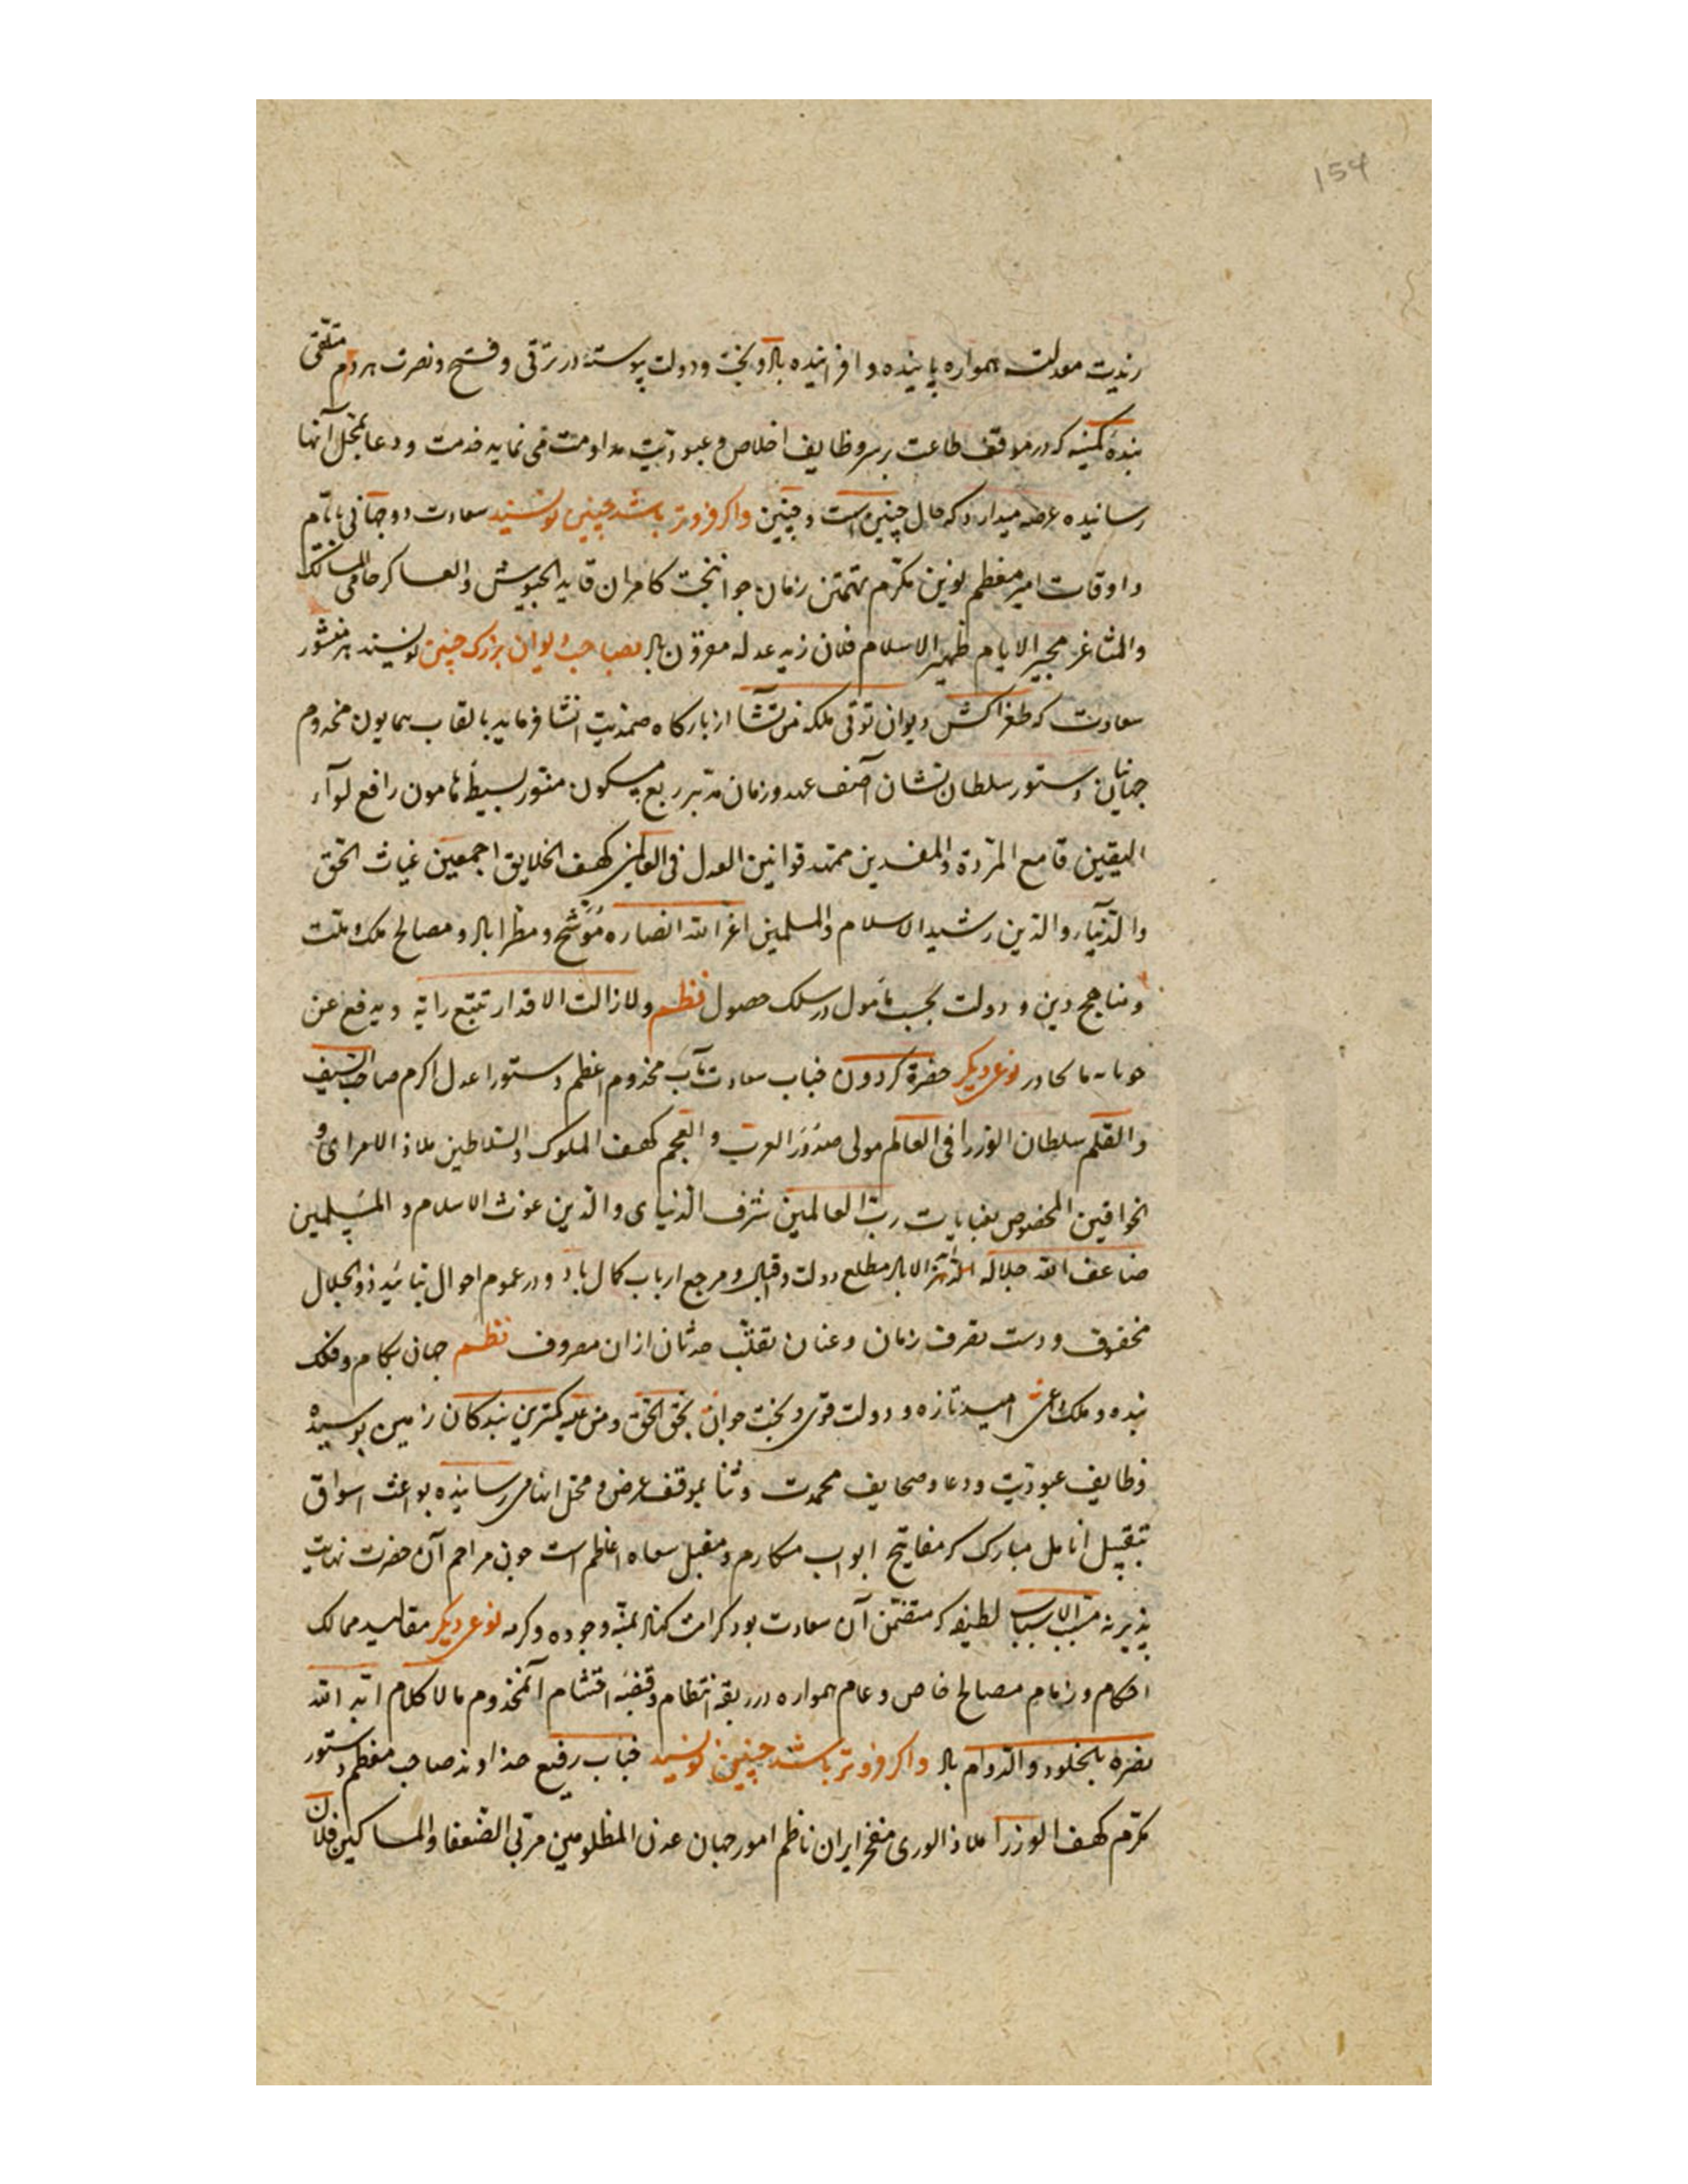 154
معدلت همواره پاینده و افزاینده باد و بخت و دولت پیوسته در ترقی و فتح و نصرت هردم متلقی
بنده کمینه که در موقف طاعت بر سر وظایف اخلاص و عبودیت مداومت می نماید خدمت و دعا بمحل آنها
رسانیده عرضه میدارد که حال چنین است و چنین واکر فروتر باشد چنین نویسند سعادت دوجهانی بایام
و اوقات امیر معظم نوین مکرم تهمتن زمان جوانبخت کامران قاید الجیوش والعساکر حامی الممالک
والمشاعر مجیر الایام ظهیر الاسلام فلان زید عدله مقرون باد بصاحب دیوان بزرک چنین نویسند هر منشور
سعادت که طغراکش دیوان توتی ملکه من تشا از بارکاه صمدیت انشا فرماید بالقاب همایون مخدوم
جهانیان دستور سلطان نشان آصف عهد و زمان مدبر ربع مسکون بسیط هامون رافع لوآء
الیقین قامع المردة والمفسدین ممهد قوانین العدل فی العالمین کهف الخلایق اجمعین غیاث الحق
والدنیا والدین رشید الاسلام والمسلمین اعز الله انصاره موشح و مطرا باد و مصالح ملک و ملت
و مناهج دین و دولت بحسب مامول در سلک حصول نظم ولا زالت الاقدار تتبع رایة و یدفع عن
نوعی دیکر حضرة کردون جناب سعادت مآب مخدوم اعظم دستور اعدل اکرم صاحب السیف
والقلم سلطان الوزرا فی العالم مولی صدور العرب و العجم کهف الملوک والسلاطین ملاذ الامرای و
الخواقین المخصوص بعنایات رب العالمین شرف الدنیای والدین غوث الاسلام و المسلمین
ضاعف الله جلاله مطلع دولت و اقبال و مرجع ارباب کمال باد و در عموم احوال بتایید ذوالجلال
محفوف و دست تصرف زمان و عنان تقلب حدثان ازان مصروف نظم جهان بکام و فلک
بنده و ملک داعی امید تازه و دولت قوی و بخت جوان بحق الحق کمترین بندکان زمین بوسیده
وظایف عبودیت و دعا و صحایف محمدت و ثنا بموقف عرض و محل انها می رسانیده بواعث اشواق
تقبیل انامل مبارک که مفاتیح ابواب مکارم و مقبل اعاظم است چون مراحم آن حضرت نهایت
پذیر نه مسبب الاسباب لطیفه که متضمن آن سعادت بود کرامت کناد بمنه وجوده وکرمه نوعی دیکر مقالید ممالک
احکام و زمام مصالح خاص و عام همواره در ربقه انتظام و قبضه آنمخدوم مالا کلام اید الله
نصره بالخلود والدوام باد واکر فروتر باشد چنین نویسند جناب رفیع خداوند صاحب معظم دستور
مکرم کهف الوزرا ملاذ الوری مفخر ایران ناظم امور جهان عون المظلومین مربی الضعفا والمساکین فلان